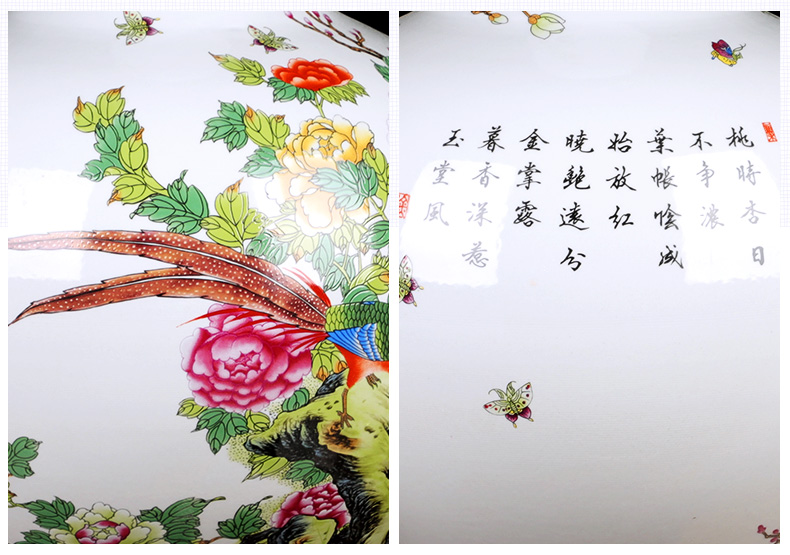 桃時杏日
不争濃
葉帳陰成
始放紅
曉艶遠分
金掌露
暮香深惹
玉堂風